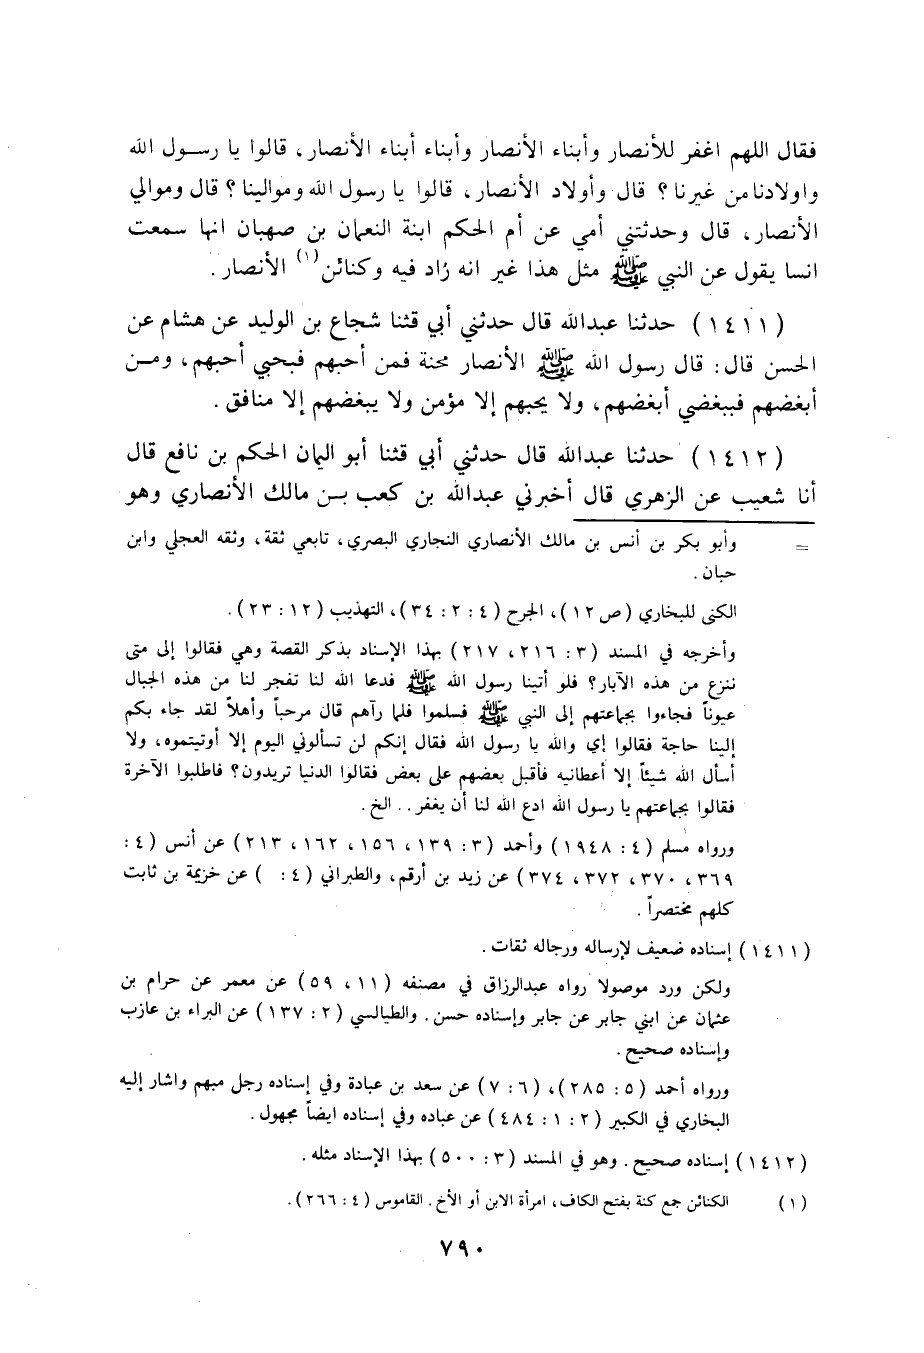 فقال اللهم اغفر للأنصار وأبناء الأنصار وأبناء أبناء الأنصار، قالوا يا رسول الله
واولادنا من غيرنا؟ قال وأولاد الأنصار، قالوا يا رسول الله وموالينا؟ قال وموالي
الأنصار، قال وحدثتني أمي عن أم الحكم ابنة النعمان بن صهبان انها سمعت
انسا يقول عن النبي ﷺ مثل هذا غير انه زاد فيه وكنائن(١) الأنصار.
(١٤١١) حدثنا عبدالله قال حدثني أبي قثنا شجاع بن الوليد عن هشام عن
الحسن قال: قال رسول الله ﷺ الأنصار محنة فمن أحبهم فبحبي أحبهم، ومن
أبغضهم فببغضي أبغضهم، ولا يحبهم إلا مؤمن ولا يبغضهم إلا منافق.
(١٤١٢) حدثنا عبدالله قال حدثني أبي قثنا أبو اليمان الحكم بن نافع قال
أنا شعيب عن الزهري قال أخبرني عبدالله بن كعب بن مالك الأنصاري وهو
= وأبو بكر بن أنس بن مالك الأنصاري النجاري البصري، تابعي ثقة، وثقه العجلي وابن
حبان.
الكنى للبخاري (ص ١٢)، الجرح (٤: ٢: ٣٤)، التهذيب (١٢: ٢٣).
وأخرجه في المسند (٣: ٢١٦، ٢١٧) بهذا الإسناد بذكر القصة وهي فقالوا إلى متى
ننزع من هذه الآبار؟ فلو أتينا رسول الله ﷺ فدعا الله لنا تفجر لنا من هذه الجبال
عيوناً فجاءوا بجماعتهم إلى النبي ﷺ فسلموا فلما رآهم قال مرحباً وأهلاً لقد جاء بكم
إلينا حاجة فقالوا أي والله يا رسول الله فقال إنكم لن تسألوني اليوم إلا أوتيتموه، ولا
أسأل الله شيئاً إلا أعطانيه فأقبل بعضهم على بعض فقالوا الدنيا تريدون؟ فاطلبوا الآخرة
فقالوا بجماعتهم يا رسول الله ادع الله لنا أن يغفر.. الخ.
ورواه مسلم (٤: ١٩٤٨) وأحمد (٣: ١٣٩، ١٥٦، ١٦٢، ٢١٣) عن أنس (٤:
٣٦٩، ٣٧٠، ٣٧٢، ٣٧٤) عن زيد بن أرقم، والطبراني (٤: ) عن خزيمة بن ثابت
كلهم مختصراً.
(١٤١١) إسناده ضعيف لإرساله ورجاله ثقات.
ولكن ورد موصولا رواه عبدالرزاق في مصنفه (١١، ٥٩) عن معمر عن حرام بن
عثمان عن ابني جابر عن جابر وإسناده حسن. والطيالسي (٢: ١٣٧) عن البراء بن عازب
وإسناده صحيح.
ورواه أحمد (٥: ٢٨٥)، (٦: ٧) عن سعد بن عبادة وفي إسناده رجل مبهم واشار إليه
البخاري في الكبير (٢: ١: ٤٨٤) عن عباده وفي إسناده ايضاً مجهول.
(١٤١٢) إسناده صحيح. وهو في المسند (٣: ٥٠٠) بهذا الإسناد مثله.
(١) الكنائن جمع كنة بفتح الكاف، امرأة الابن أو الأخ. القاموس (٤: ٢٦٦).
٧٩٠